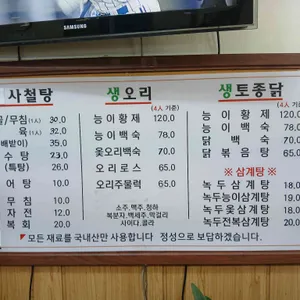 SAMSUNG
사철탕
무침 (1人) 30.0
육 (1人) 32.0
배받이) 35.0
수탕 23.0
(특탕) 26.0
어탕 10.0
무침 10.0
자전 12.0
복회 20.0
생오리
(4人 기준)
능이황제 120.0
능이백숙 78.0
옻오리백숙 70.0
오리로스 65.0
오리주물럭 65.0
소주, 맥주, 청하
복분자, 백세주, 막걸리
사이다, 콜라
생토종닭
(4人 기준)
능이황제 120.0
능이백숙 78.0
닭백숙 70.0
닭볶음탕 65.0
※ 삼계탕 ※
녹두삼계탕 15.0
녹두능이삼계탕 18.0
녹두옻삼계탕 18.0
녹두전복삼계탕 20.0
모든 재료를 국내산만 사용합니다 정성으로 보답하겠습니다.